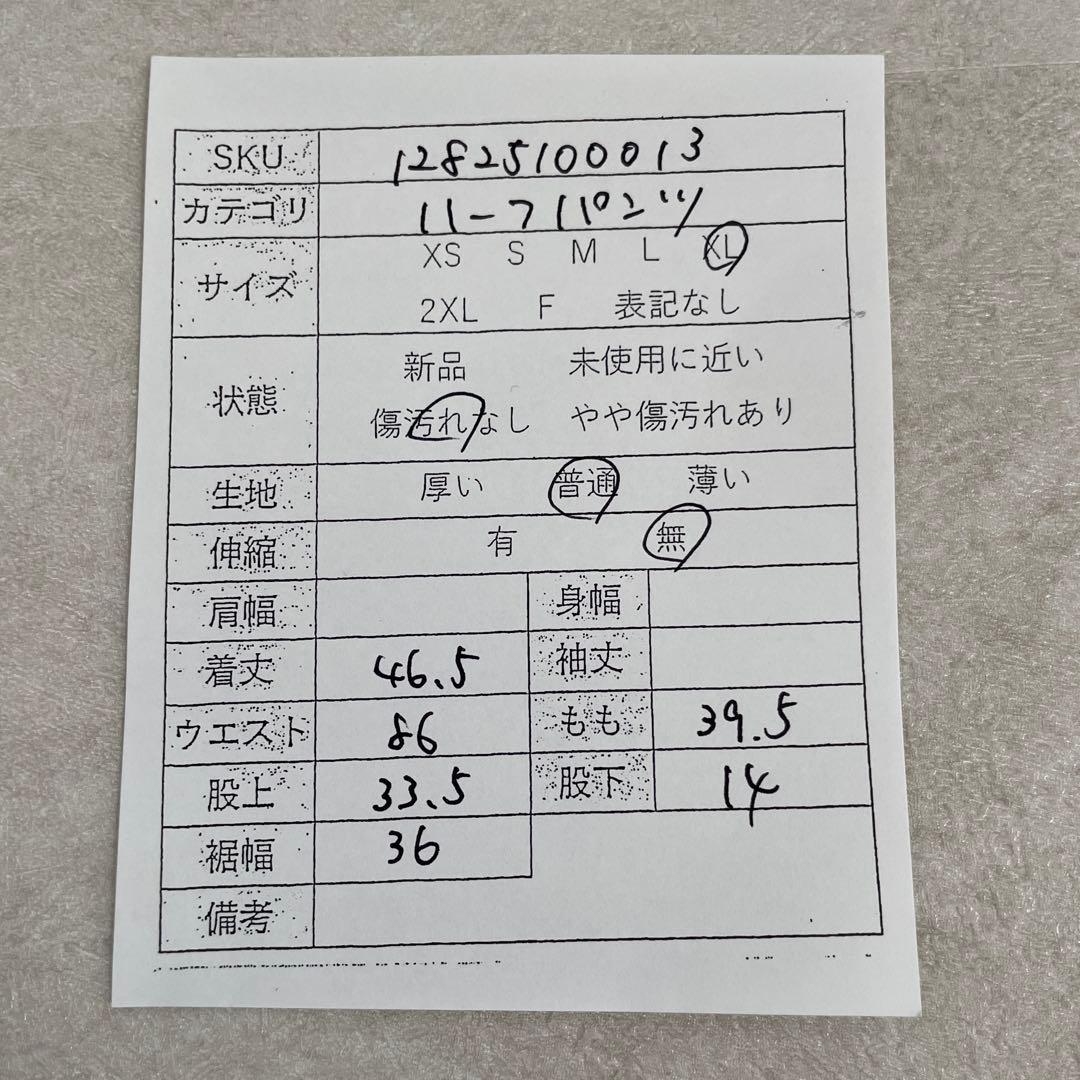 SKU 12825100013
カテゴリ ハーフパンツ
サイズ XS S M L XL
2XL F 表記なし
状態 新品 未使用に近い
傷汚れなし やや傷汚れあり
生地 厚い 普通 薄い
伸縮 有 無
肩幅 身幅
着丈 46.5 袖丈
ウエスト 86 もも 39.5
股上 33.5 股下 14
裾幅 36
備考